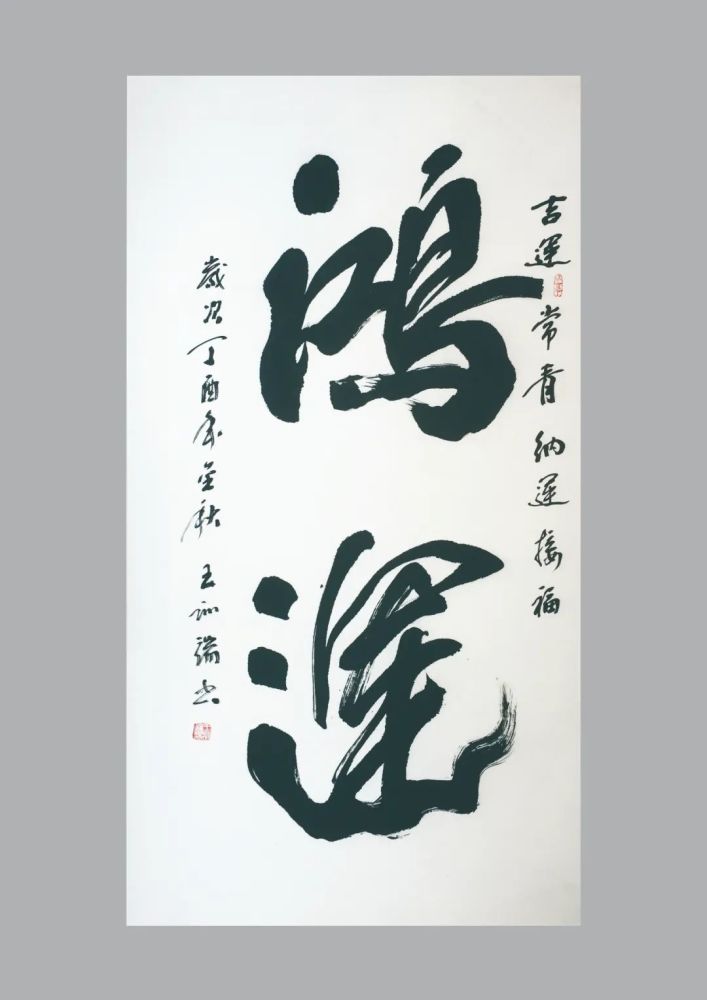 吉運常青納運接福
鴻運
歲次丁酉年金秋王訓瑞書